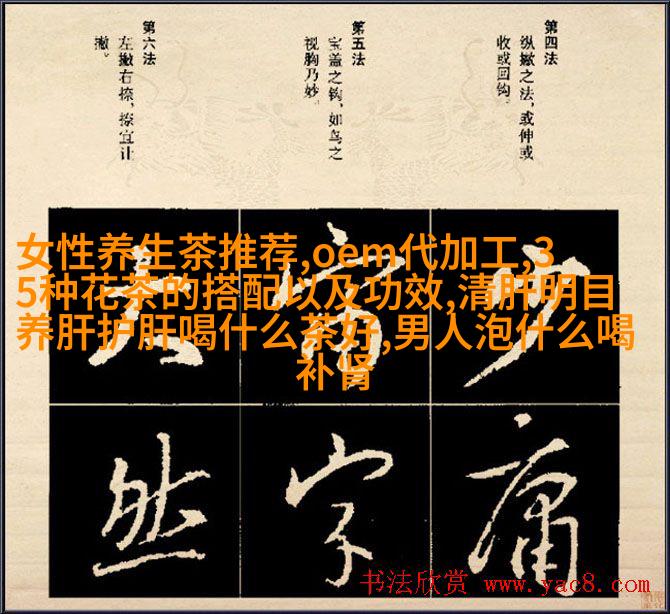 第四法
纵撇之法，或伸或
收或回钩。
第五法
宝盖之钩，如鸟之
视胸乃妙。
第六法
左撇右捺，捺宜让
撇。
女性养生茶推荐,oem代加工,3
5种花茶的搭配以及功效,清肝明目
养肝护肝喝什么茶好,男人泡什么喝
补肾
庸
字
然
书法欣赏 www.yac8.com